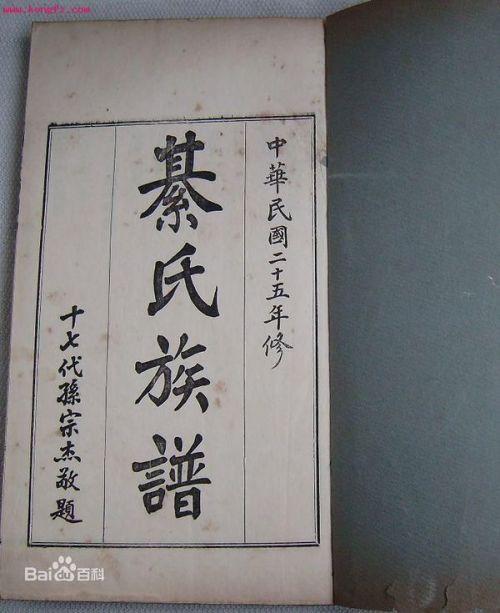 www.kongfz.com
中華民國二十五年修
綦氏族譜
十七代孫宗杰敬題
Bai百科